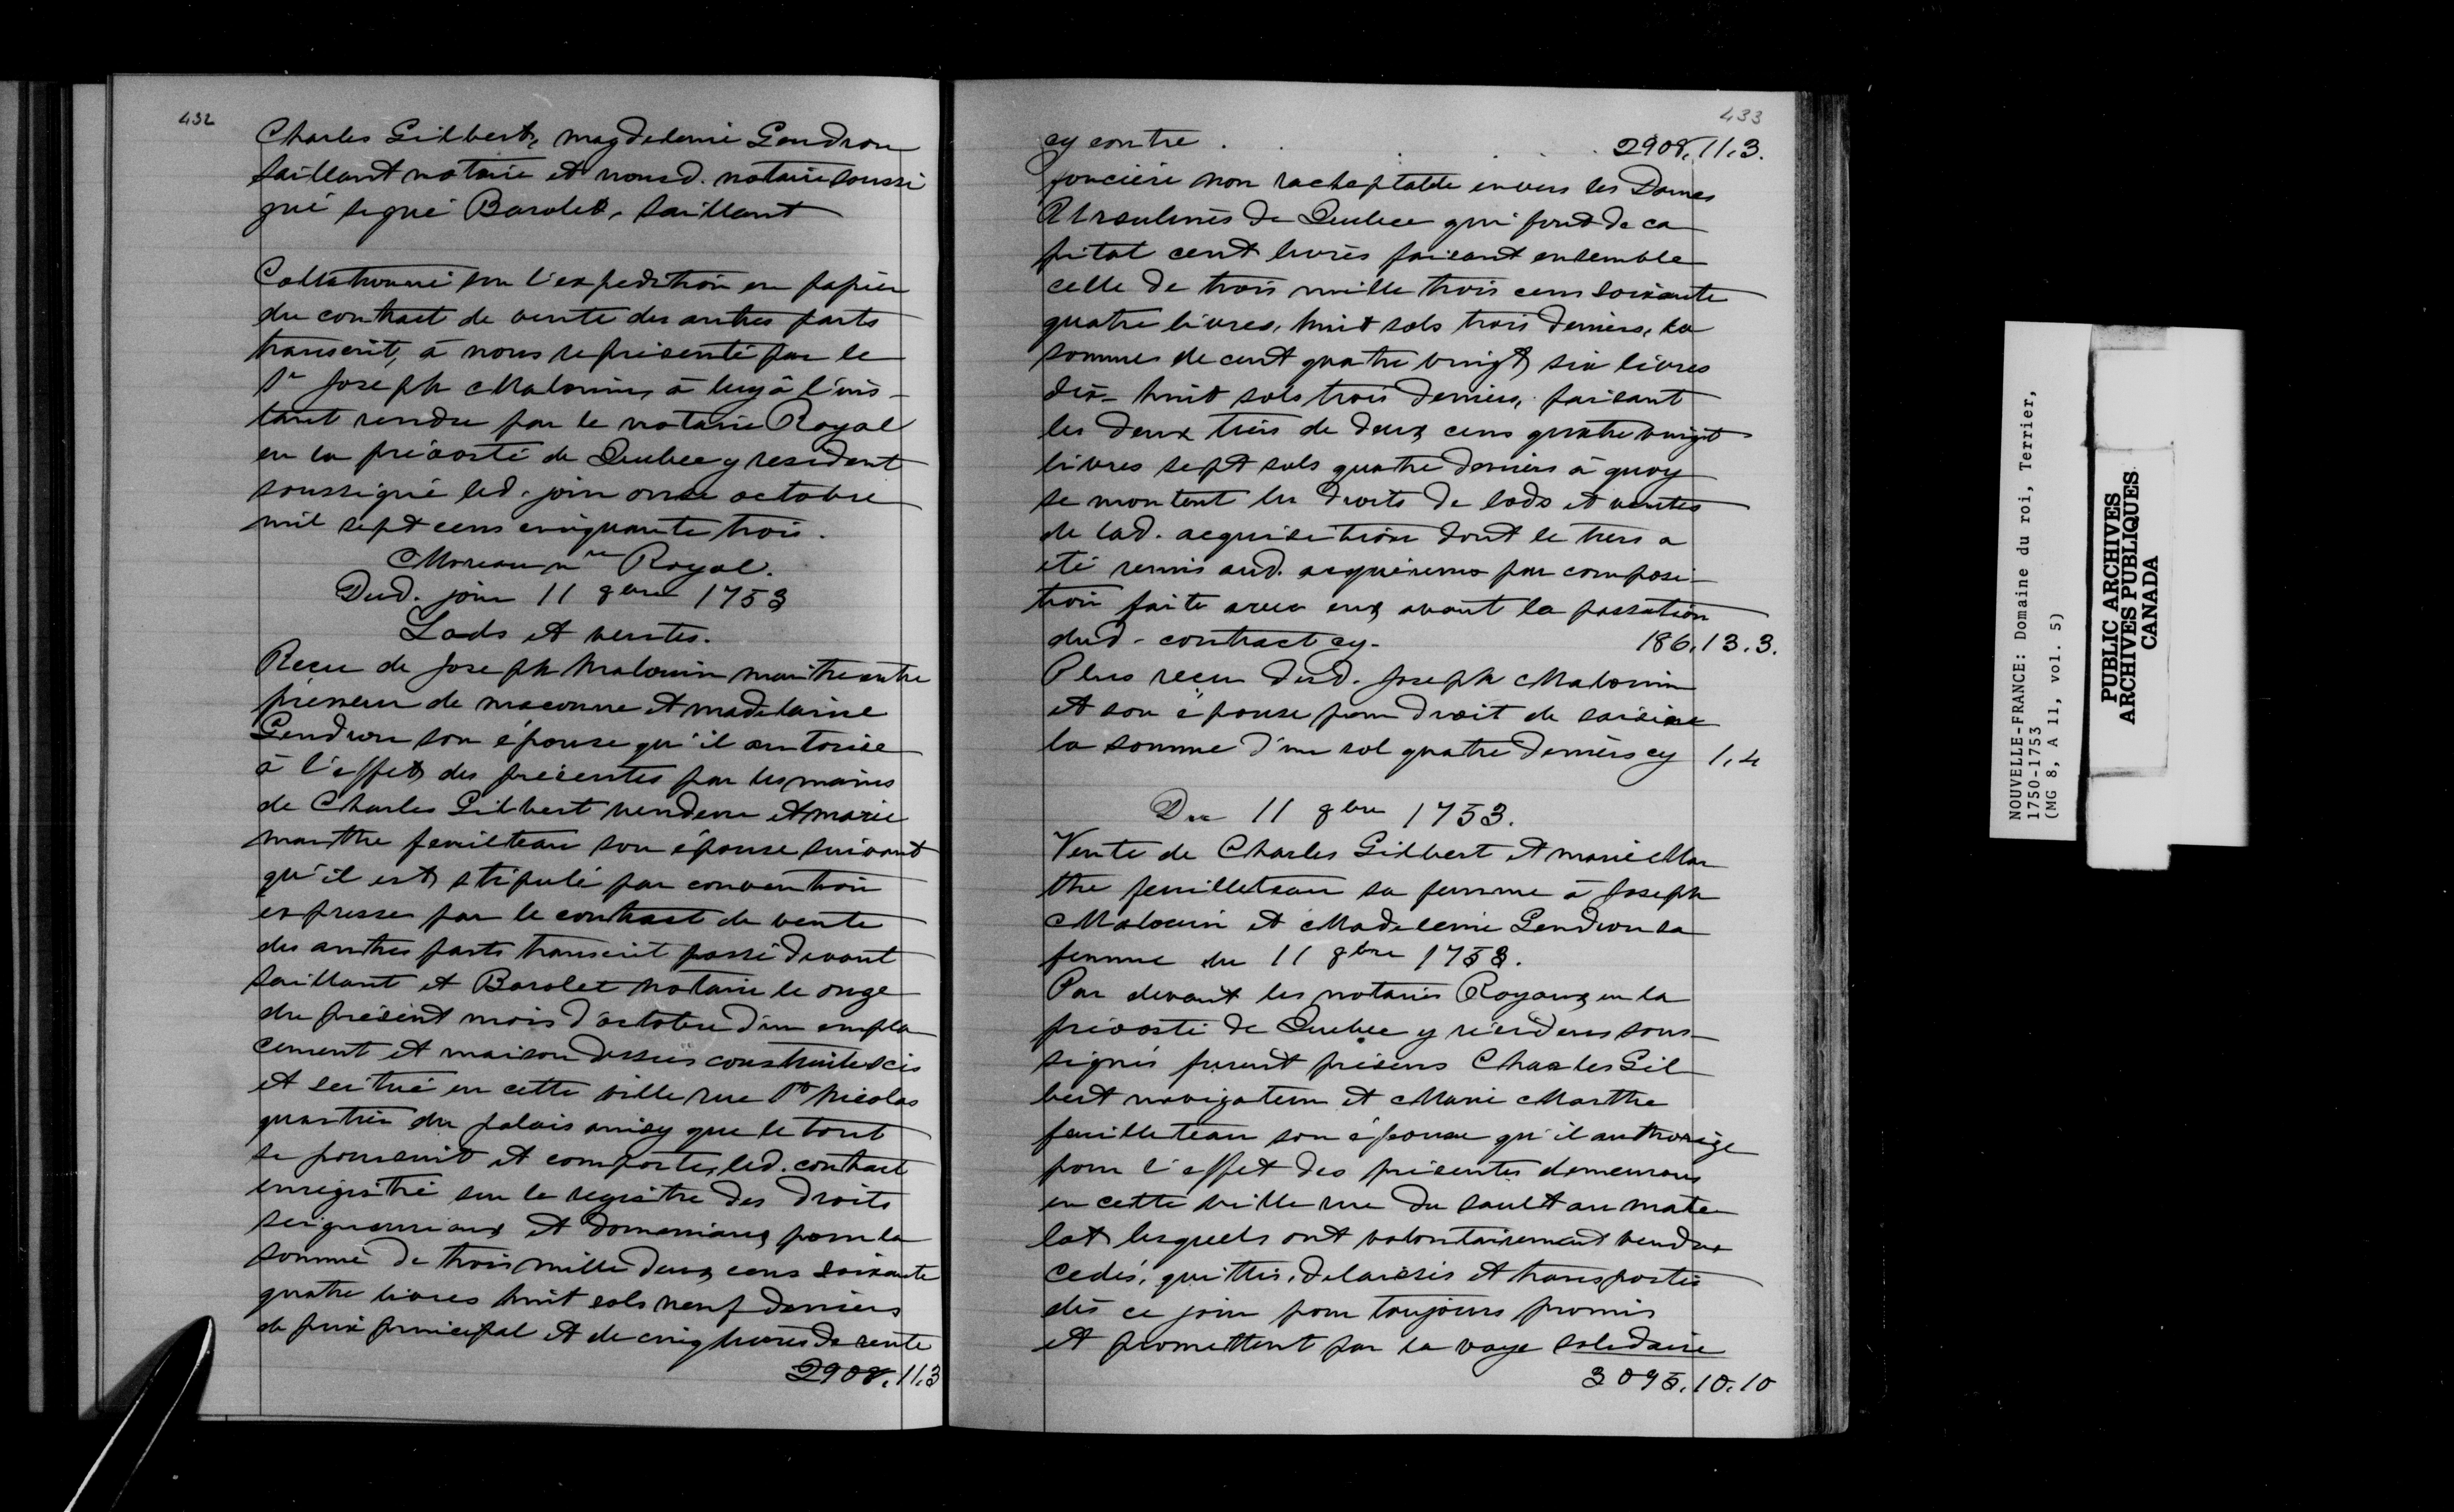 432
Charles Gilbert, magdeleine Gendron
saillant notaire et nousd. notaire soussi
gné signé Barolet, saillant
Collationné sur l'expedition en papier
du contract de vente des autres parts
transcrit, à nous representé par le
Sr Joseph Malouin, à luy à l'ins-
tant rendu par le notaire Royal
en la prévosté de Quebec y resident
soussigné led. jour onze octobre
mil sept cens cinquante trois.
Moreau nre Royal.
Dud. jour 11 8bre 1753
Lods et ventes.
Reçu de Joseph Malouin maitre entre
preneur de maconne et madelaine
Gendron son épouse qu'il autorise
à l'effet des présentes par les mains
de Charles Gilbert vendeur et marie
marthe feuilteau son épouse suivant
qu'il est stipulé par convention
expresse par le contract de vente
des autres parts transcrit passé devant
saillant et Barolet notaire le onze
du présent mois d'octobre d'un empla
cement et maison dessus construite scis
et scitué en cette ville rue St Nicolas
quartier du palais ainsy que le tout
se poursuit et comporte, led. contract
enregistré sur le registre des droits
seigneuriaux et domaniaux pour la
somme de trois mille deux cens soixante
quatre livres huit sols neuf deniers
de prix principal et de cinq livres de rente
2908.11.3
433
cy contre . . . . 2908.11.3.
foncière non racheptable envers les Dames
Ursulines de Quebec qui font de ca
pital cent livres faisant ensemble
celle de trois mille trois cens soixante
quatre livres, huit sols trois deniers, la
somme de cent quatre vingt six livres
dix-huit sols trois deniers, faisant
les deux tiers de deux cens quatre vingt
livres sept sols quatre deniers à quoy
se montent les droits de lods et ventes
de lad. acquisition dont le tiers a
été remis aud. acquéreurs par composi-
tion faite avec eux avant la passation
dud. contract cy. 186.13.3.
Plus reçu dud. Joseph Malouin
et son épouse pour droit de saisine
la somme d'un sol quatre deniers cy 1.4
Du 11 8bre 1753.
Vente de Charles Gilbert et marie Mar
the feuilleteau sa femme à Joseph
Malouin et Madeleine Gendron sa
femme du 11 8bre 1753.
Par devant les notaires Royaux en la
prévosté de Quebec y résidens sous-
signés furent présens Charles Gil
bert navigateur et Marie Marthe
feuilleteau son épouse qu'il authorize
pour l'effet des présentes demeurans
en cette ville rue du sault au mate
lot lesquels ont volontairement vendus
cedés, quittés, delaissés et transportés
dès ce jour pour toujours promis
et promettent par la voye solidaire
3095.10.10
NOUVELLE-FRANCE: Domaine du roi, Terrier,
1750-1753
(MG 8, A 11, vol. 5)
PUBLIC ARCHIVES
ARCHIVES PUBLIQUES
CANADA